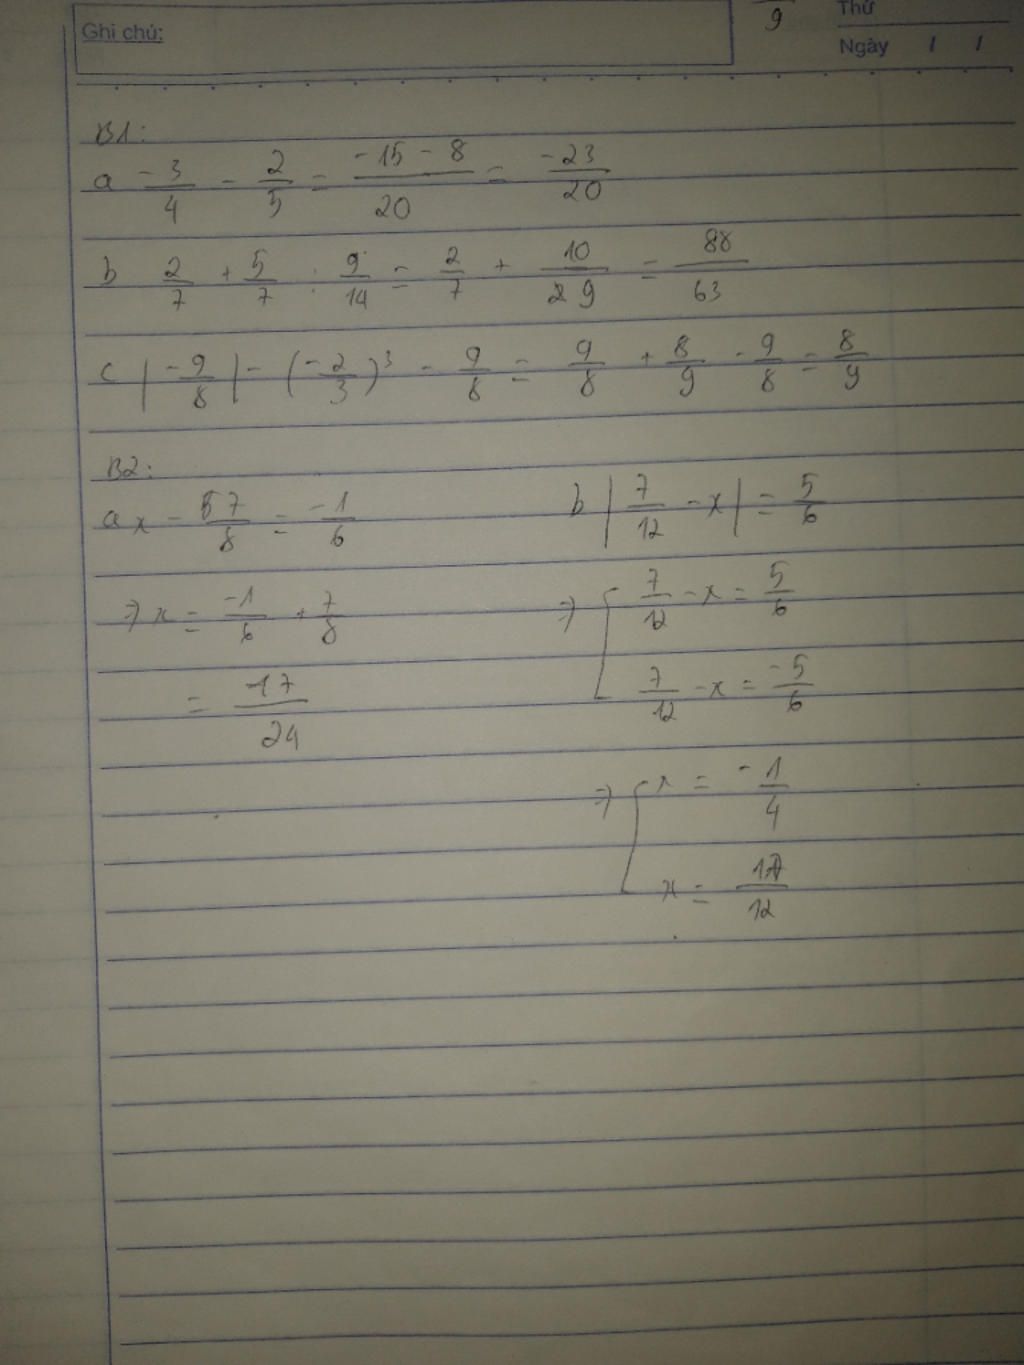 9
Thứ
Ghi chú:
Ngày / /
B1:
a -3/4 - 2/5 = (-15 - 8)/20 = -23/20
b 2/7 + 5/7 : 9/14 = 2/7 + 10/9 = 88/63
c |-9/8| - (-2/3)³ - 9/8 = 9/8 + 8/9 - 9/8 = 8/9
B2:
a x - 7/8 = -1/6
⇒ x = -1/6 + 7/8
= 17/24
b |7/12 - x| = 5/6
⇒ [ 7/12 - x = 5/6
7/12 - x = -5/6
⇒ [ x = -1/4
x = 17/12